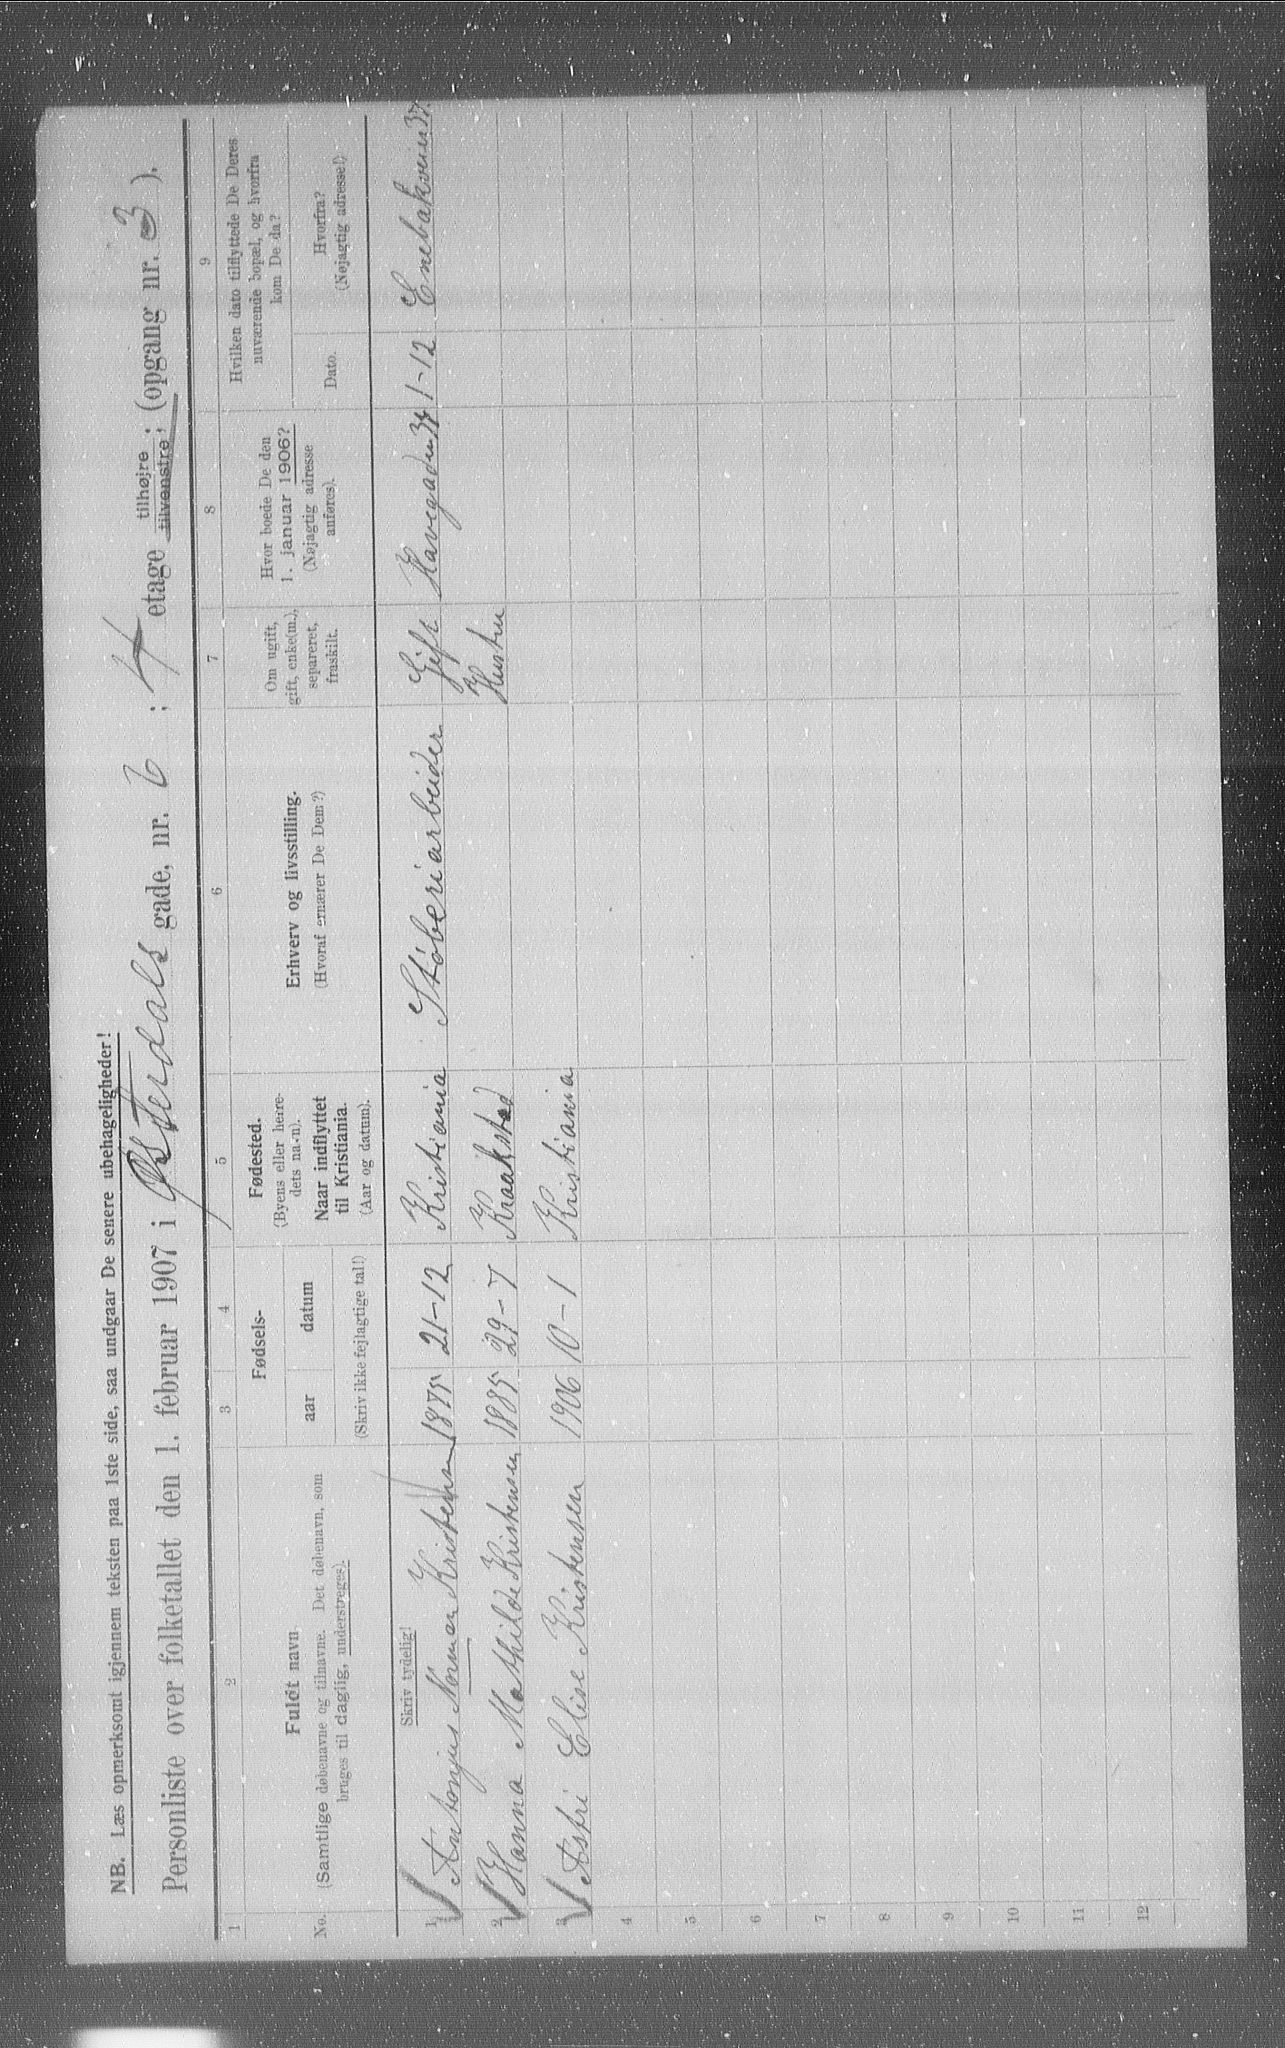 NB. Læs opmerksomt igjennem teksten paa 1ste side, saa undgaar De senere ubehageligheder!
Personliste over folketallet den 1. februar 1907 i Østerdals gade, nr. 6 ; 4 etage tilhøjre ; (opgang nr. 3 ).
tilvenstre ;
1 2 3 4 5 6 7 8 9
No.
Fuldt navn
(Samtlige døbenavne og tilnavne. Det døbenavn, som
bruges til daglig, understreges).
Fødsels-
aar datum
(Skriv ikke fejlagtige tal!)
Fødested.
(Byens eller herre-
dets navn).
Naar indflyttet
til Kristiania.
(Aar og datum).
Erhverv og livsstilling.
(Hvoraf ernærer De Dem?)
Om ugift,
gift, enke(m.),
separeret,
fraskilt.
Hvor boede De den
1. januar 1906?
(Nøjagtig adresse
anføres).
Hvilken dato tilflyttede De Deres
nuværende bopæl, og hvorfra
kom De da?
Dato.
Hvorfra?
(Nøjagtig adresse!)
Skriv tydelig!
1 Antonjus Norman Kristensen 1875 21-12 Kristiania Støberiarbeider Gift Havegaden 1-12 Enebakvein 37.
2 Hanna Mathilde Kristensen 1885 29-7 Kraakstad Hustru
3 Astri Elise Kristensen 1906 10-1 Kristiania
4
5
6
7
8
9
10
11
12